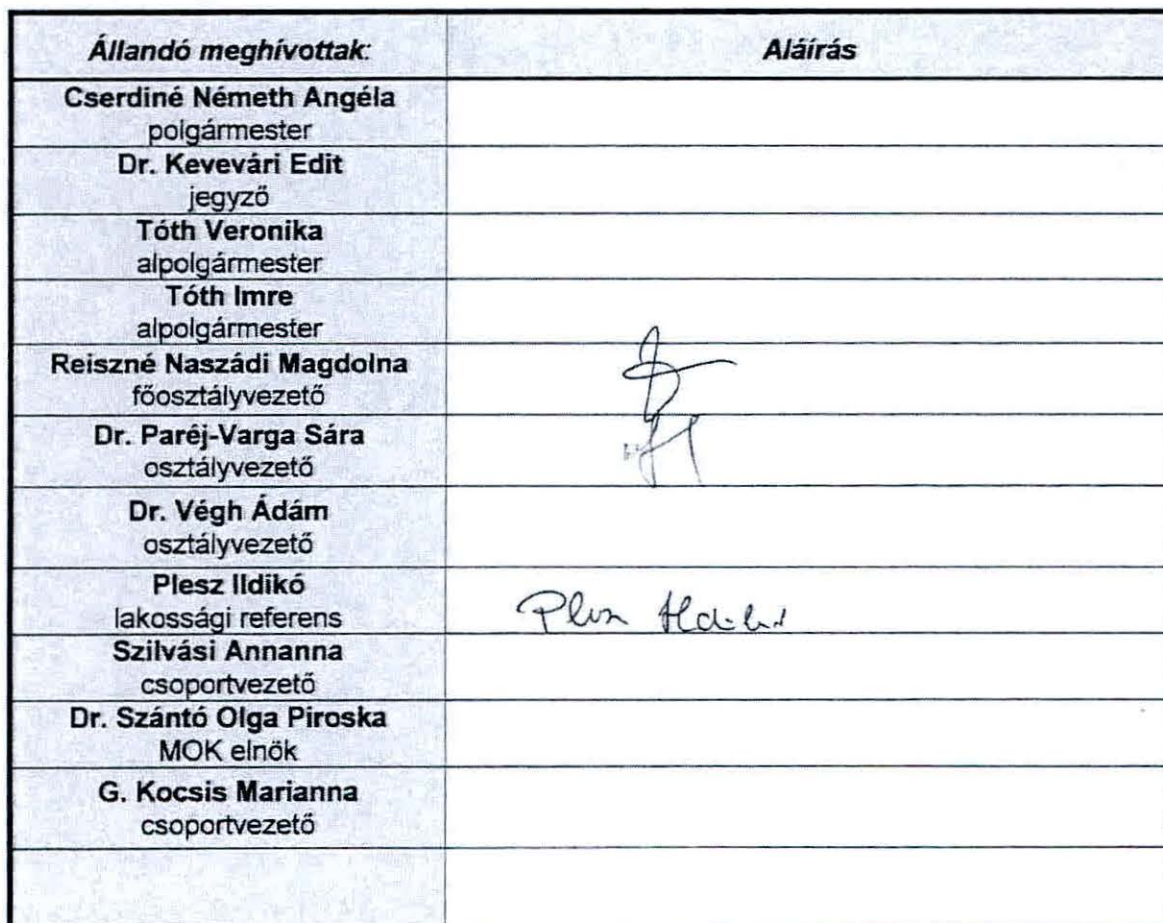 Állandó meghívottak: Aláírás
Cserdiné Németh Angéla
polgármester
Dr. Kevevári Edit
jegyző
Tóth Veronika
alpolgármester
Tóth Imre
alpolgármester
Reiszné Naszádi Magdolna
főosztályvezető
Dr. Paréj-Varga Sára
osztályvezető
Dr. Végh Ádám
osztályvezető
Plesz Ildikó
lakossági referens
Szilvási Annanna
csoportvezető
Dr. Szántó Olga Piroska
MOK elnök
G. Kocsis Marianna
csoportvezető